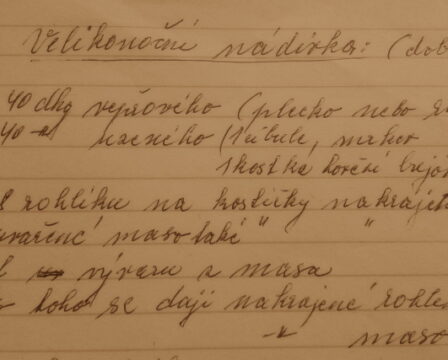 Velikonoční nádivka: (dob
40 dkg vepřového (plecko nebo
40 -"- uzeného (1 cibule, mrkev
1 kostka hovězí bujó
rohlíku na kostičky nakráje
uvařené maso také " "
l vývaru z masa
toho se dají nakrájené rohl
-"- maso